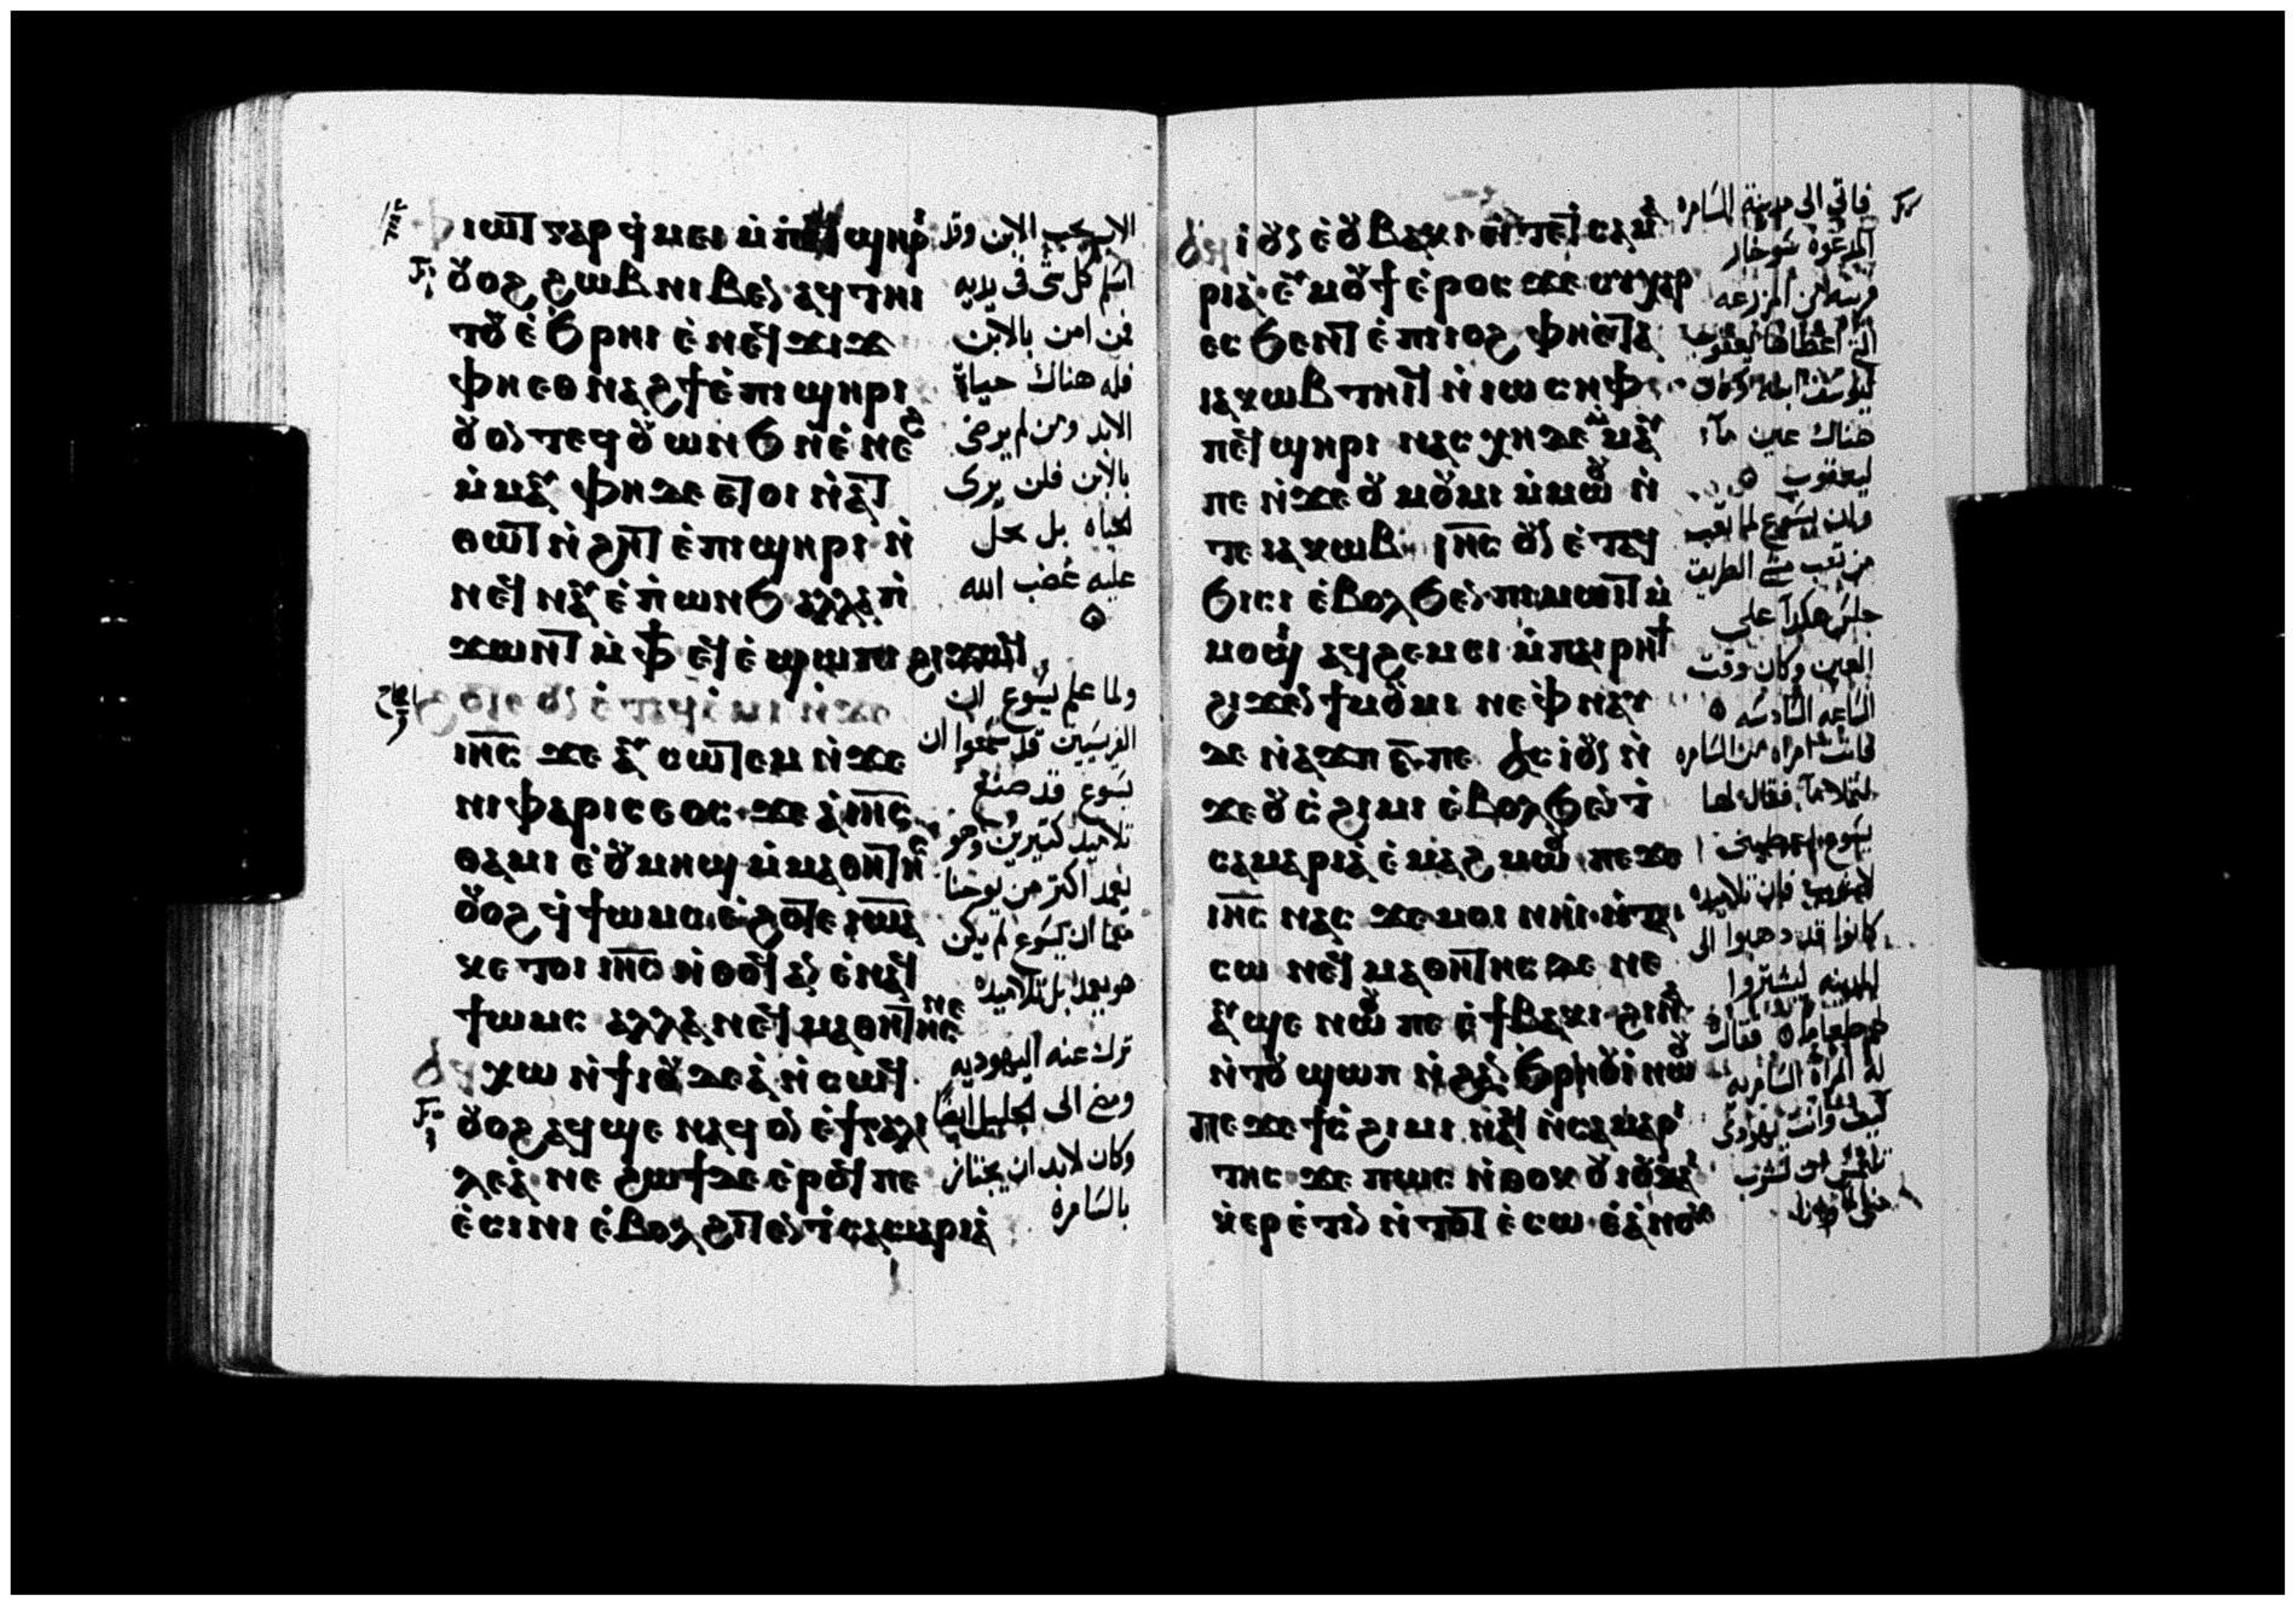 ⲓⲱⲧ ⲅⲁⲣ ϥ̇ⲙⲉⲓ ⲙ̇ⲡⲓ ϣⲏⲣⲓ
ⲟⲩⲟϩ ϩⲱⲃ ⲛⲓⲃⲉⲛ ⲁϥⲧⲏⲓ
ⲧⲟⲩ ⲉ̇ϧⲣⲏⲓ ⲉ̇ⲛⲉϥϫⲓϫ
ⲫⲏⲉⲑⲛⲁϩϯ ⲉ̇ⲡⲓϣⲏⲣⲓ
ⲟⲩⲟⲛⲧⲉϥ ⲟⲩⲱⲛϧ ⲛ̇ⲉ̇ⲛⲉϩ
ⲙ̇ⲙⲁⲩ ⲫⲏ ⲇⲉ ⲉⲧⲟⲓ ⲛ̇ⲁⲧ
ⲑⲱⲧ ⲛ̇ϩⲏⲧ ⲉ̇ⲡⲓϣⲏⲣⲓ ⲛ̇
ⲛⲉϥⲛⲁⲩ ⲉ̇ⲡ̇ⲱⲛϧ ⲁⲗⲗⲁ ⲡ̇
ϫⲱⲛⲧ ⲙ̇ⲫϯ ⲉϥⲉ̇ϣⲱⲡⲓ ϩⲓϫⲱϥ
ⲟⲩⲛ ⲉ̇ⲧⲁϥⲉ̇ⲙⲓ ⲛ̇ϫⲉ
ⲓⲏ̅ⲥ̅ ϫⲉ ⲁⲩⲥⲱⲧⲉⲙ ⲛ̇ϫⲉ
ⲛⲓⲫⲁⲣⲓⲥⲉⲟⲥ ϫⲉ ⲁ̇ⲓⲏ̅ⲥ̅
ⲑⲁⲙⲓⲉ̇ ⲟⲩⲙⲏϣ ⲙ̇ⲙⲁⲑⲏⲧⲏⲥ
ⲟⲩⲟϩ ϥ̇ϯⲱⲙⲥ ⲉ̇ϩⲟⲧⲉ ⲓⲱⲁ
ⲕⲉⲧⲟⲓ ⲓⲏ̅ⲥ̅ ⲛ̇ⲑⲟϥ ⲁⲛ ⲉ̇ⲛⲁϥ
ϯⲱⲙⲥ ⲁⲗⲗⲁ ⲛⲉϥⲙⲁⲑⲏⲧⲏⲥ ⲛⲉ
ⲁϥⲭⲱ ⲛ̇ϯⲓⲟⲩⲇⲉⲁ̇ ⲛ̇ⲥⲱϥ
ⲟⲩⲟϩ ⲁϥϣⲉ ⲛⲁϥ ⲟⲛ ⲉ̇ϯⲅⲁⲗⲓ
ⲗⲉⲁ̇ ⲛⲉ ϩⲱϯ ⲇⲉ ⲉ̇ⲣⲟϥ ⲡⲉ
ⲉ̇ⲥⲓⲛⲓ ⲉ̇ⲃⲟⲗϩⲓⲧⲉⲛ ⲧ̇ⲥⲁⲙⲁⲣⲓⲁ̇
الاب يحب الابن وقد
اسلم كل شى فى يديه
فمن امن بالابن
فله هناك حياة
الابد ومن لم يرضى
بالابن فلن يرى
الحياه بل يحل
عليه غضب الله
ولما علم يسوع ان
الفريسيين قد سمعوا ان
يسوع قد صنع
تلاميد كتيرين وهو
يعمد اكتر من يوحنا
ان يسوع لم يكن
هو يعمد بل تلاميده
ترك عنه اليهوديه
ومضى الى الجليل ايضا
وكان لابد ان يجتاز
بالسامرة
ⲁϥⲓ̇ ⲟⲩⲛ ⲉ̇ⲟⲩⲃⲁⲕⲓ ⲛ̇ⲧⲉ ⲧ̇ⲥⲁⲙⲁ
ⲣⲓⲁ̇ ⲉⲩⲙⲟⲩϯ ⲉ̇ⲣⲟⲥ ϫⲉ ⲥⲩⲭⲁⲣ
ⲉⲥϧⲉⲛⲧ ⲉ̇ⲡⲓⲓⲟϩ ⲫⲏⲉ̇ⲧⲁ
ⲓⲁⲕⲱⲃ ⲧⲏⲓϥ ⲛ̇ⲓⲱⲥⲏⲫ
ⲡⲉϥϣⲏⲣⲓ ⲛⲁⲥⲭⲏ ⲇⲉ ⲙ̇ⲙⲁⲩ
ⲡⲉ ⲛ̇ϫⲉ ⲟⲩⲙⲟⲩⲙⲓ ⲙ̇ⲙⲱⲟⲩ ⲛ̇
ⲧⲉ ⲓⲁⲕⲱⲃ ⲓⲏ̅ⲥ̅ ⲟⲩⲛ ⲉ̇ⲧⲁϥ
ϧⲓⲥⲓ ⲉ̇ⲃⲟⲗϧⲉⲛ ⲡⲓⲙⲱⲓⲧ ⲙ̇
ⲙⲟϣⲓ ⲁϥϩⲉⲙⲥⲓ ⲙ̇ⲡⲁⲓⲣⲏϯ
ϩⲓϫⲉⲛ ϯⲙⲟⲩⲙⲓ ⲛⲉ ⲫⲛⲁⲩ
ⲇⲉ ⲛ̇ⲁϫⲡ ⲋ̅ ⲡⲉ ⲁⲥⲓ̇ ⲟⲩⲛ ⲛ̇
ϫⲉ ⲟⲩⲥ̇ϩⲓⲙⲓ ⲉ̇ⲃⲟⲗϧⲉⲛ ⲧ̇
ⲥⲁⲙⲁⲣⲓⲁ̇ ⲉ̇ⲙⲁϩ ⲙⲱⲟⲩ ⲡⲉϫⲉ
ⲓⲏ̅ⲥ̅ ⲛⲁⲥ ϫⲉ ⲙⲟⲓ ⲛⲏⲓ ⲛ̇ⲧⲁ
ⲥⲱ ⲛⲉϥⲙⲁⲑⲏⲧⲏⲥ ⲇⲉ ⲛⲉ
ⲁⲩϣⲉ ⲛⲱⲟⲩ ⲡⲉ ⲉ̇ϯⲃⲁⲕⲓ ϩⲓⲛⲁ
ⲛ̇ⲧⲟⲩ ϣⲱⲡ ⲛ̇ϩⲁⲛϧⲣⲏⲟⲩⲓ̇ ⲛⲱⲟⲩ
ⲡⲉϫⲉ ϯⲥ̇ϩⲓⲙⲓ ⲛⲁϥ ⲛ̇ⲥⲁⲙⲁⲣⲓ
ⲧⲏⲥ ϫⲉ ⲡⲱⲥ ⲛ̇ⲑⲟⲕ ⲟⲩⲓⲟⲩⲇⲁⲓ
ⲕ̇ⲉⲣⲉ̇ⲧⲓⲛ ⲛ̇ⲧⲟⲧ ⲉ̇ⲥⲱ ⲉ̇ⲁ̇ⲛⲟⲕ
فاتى الى مدينة السامره
المدعوة سوخار
قريبه من المزرعه
التى اعطاها يعقوب
ليوسف ابنه وكان
هناك عين مآء
ليعقوب
وان يسوع لما تعب
من تعب مشى الطريق
جلس هكدا على
العين وكان وقت
الساعه السادسه
فاتت امراه من السامره
لتملا مآء فقال لها
يسوع اعطينى
لاشرب فان تلاميده
كانوا قد دهبوا الى
المدينه ليشتروا
لهم طعاما فقالت
له المراه السامريه
كيف وانت يهودى
تلتمس ان تشرب